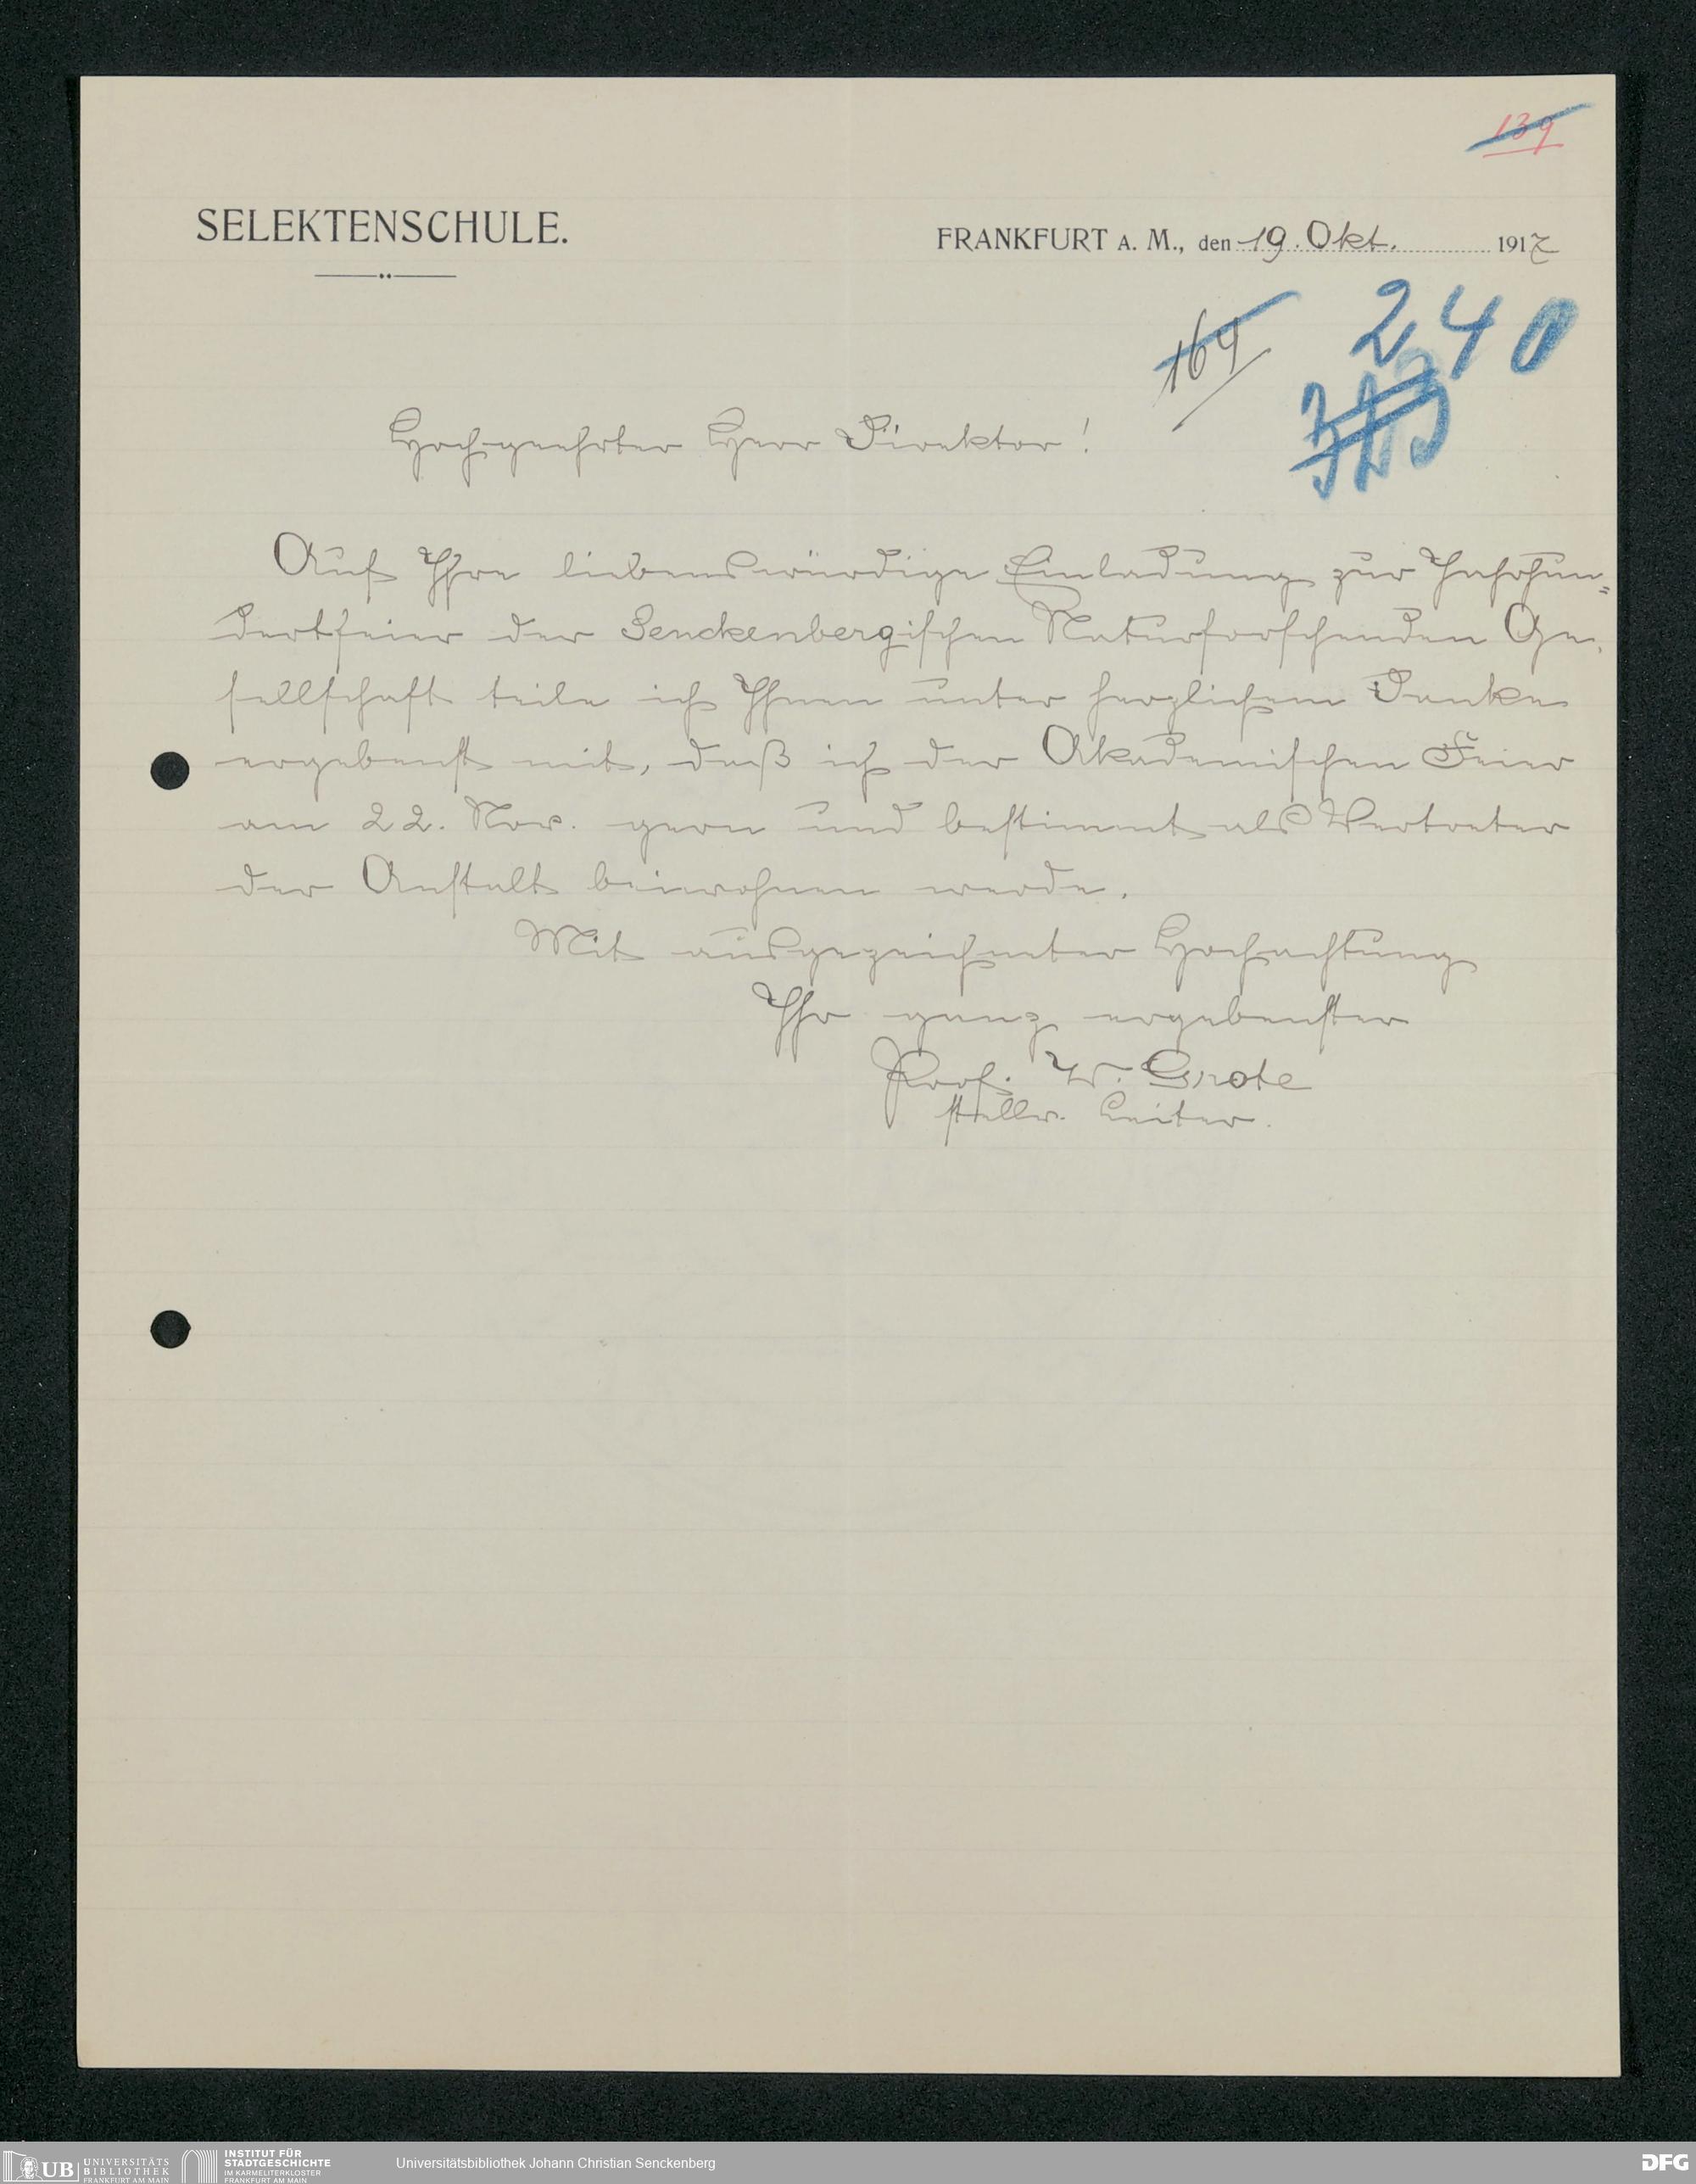 139
SELEKTENSCHULE.
FRANKFURT A. M., den 19. Okt. 1917
169
240
Hochgeehrter Herr Direktor!
Auf Ihre liebenswürdige Einladung zur Jahrhun=
dertfeier der Senckenbergischen Naturforschenden Ge-
sellschaft teile ich Ihnen unter herzlichem Danke
ergebenst mit, daß ich der Akademischen Feier
am 22. Nov. gern und bestimmt als Vertreter
der Anstalt beiwohnen werde.
Mit ausgezeichneter Hochachtung
Ihr ganz ergebenster
Prof. W. Grote
stellv. Leiter.
UB UNIVERSITÄTS
BIBLIOTHEK
FRANKFURT AM MAIN
INSTITUT FÜR
STADTGESCHICHTE
IM KARMELITERKLOSTER
FRANKFURT AM MAIN
Universitätsbibliothek Johann Christian Senckenberg
DFG